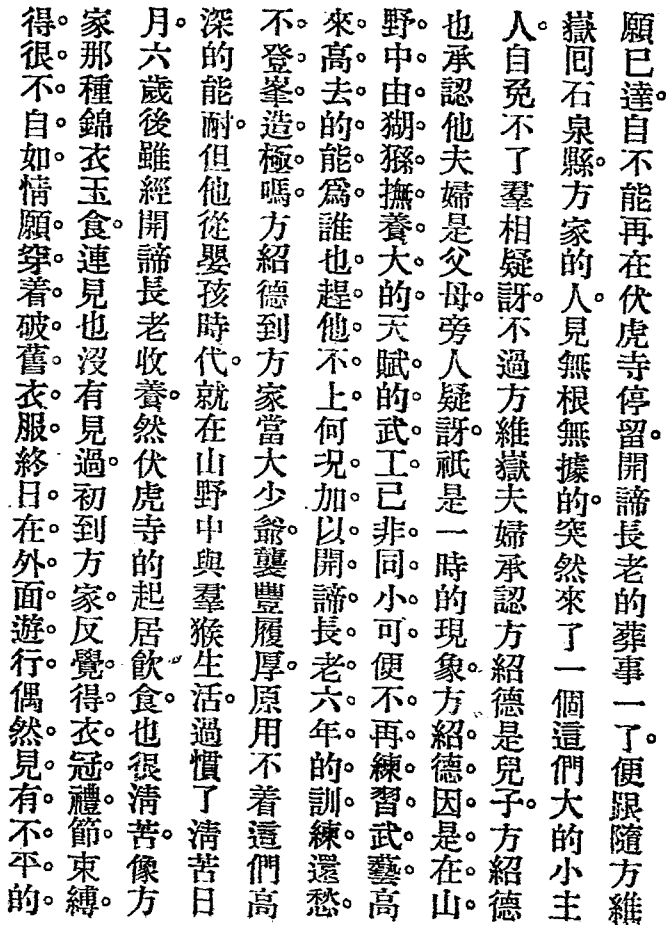 願已達。自不能再在伏虎寺停留。開諦長老的葬事一了。便跟隨方維
嶽囘石泉縣。方家的人。見無根無據的。突然來了一個這們大的小主
人。自免不了羣相疑訝。不過方維嶽夫婦承認方紹德是兒子。方紹德
也承認他夫婦是父母。旁人疑訝。祇是一時的現象。方紹德因是在山
野中由猢猻撫養大的。天賦的武工。已非同小可。便不再練習武藝。高
來高去的能爲。誰也趕他不上。何况加以開諦長老六年的訓練。還愁
不登峯造極嗎。方紹德到方家當大少爺。襲豐履厚。原用不着這們高
深的能耐。但他從嬰孩時代。就在山野中與羣猴生活。過慣了淸苦日
月。六歲後雖經開諦長老收養。然伏虎寺的起居飮食。也很淸苦。像方
家那種錦衣玉食。連見也沒有見過。初到方家。反覺得衣冠禮節。束縛
得很不自如。情願穿着破舊衣服。終日在外面遊行。偶然見有不平的。